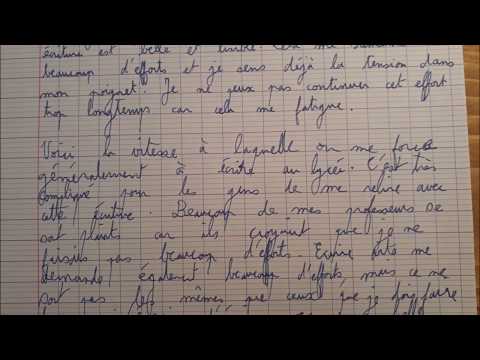 écriture est belle et lisible. Cela me
beaucoup d'efforts et je sens déjà la tension dans
mon poignet. Je ne peux pas continuer cet effort
trop longtemps car cela me fatigue.
Voici la vitesse à laquelle on me force
généralement à écrire au lycée. C'est très
compliqué pour les gens de me relire avec
cette écriture. Beaucoup de mes professeurs se
sont plaints car ils croyaient que je ne
faisais pas beaucoup d'efforts. Ecrire vite me
demande également beaucoup d'efforts mais ce ne
sont pas les mêmes que ceux que je dois faire